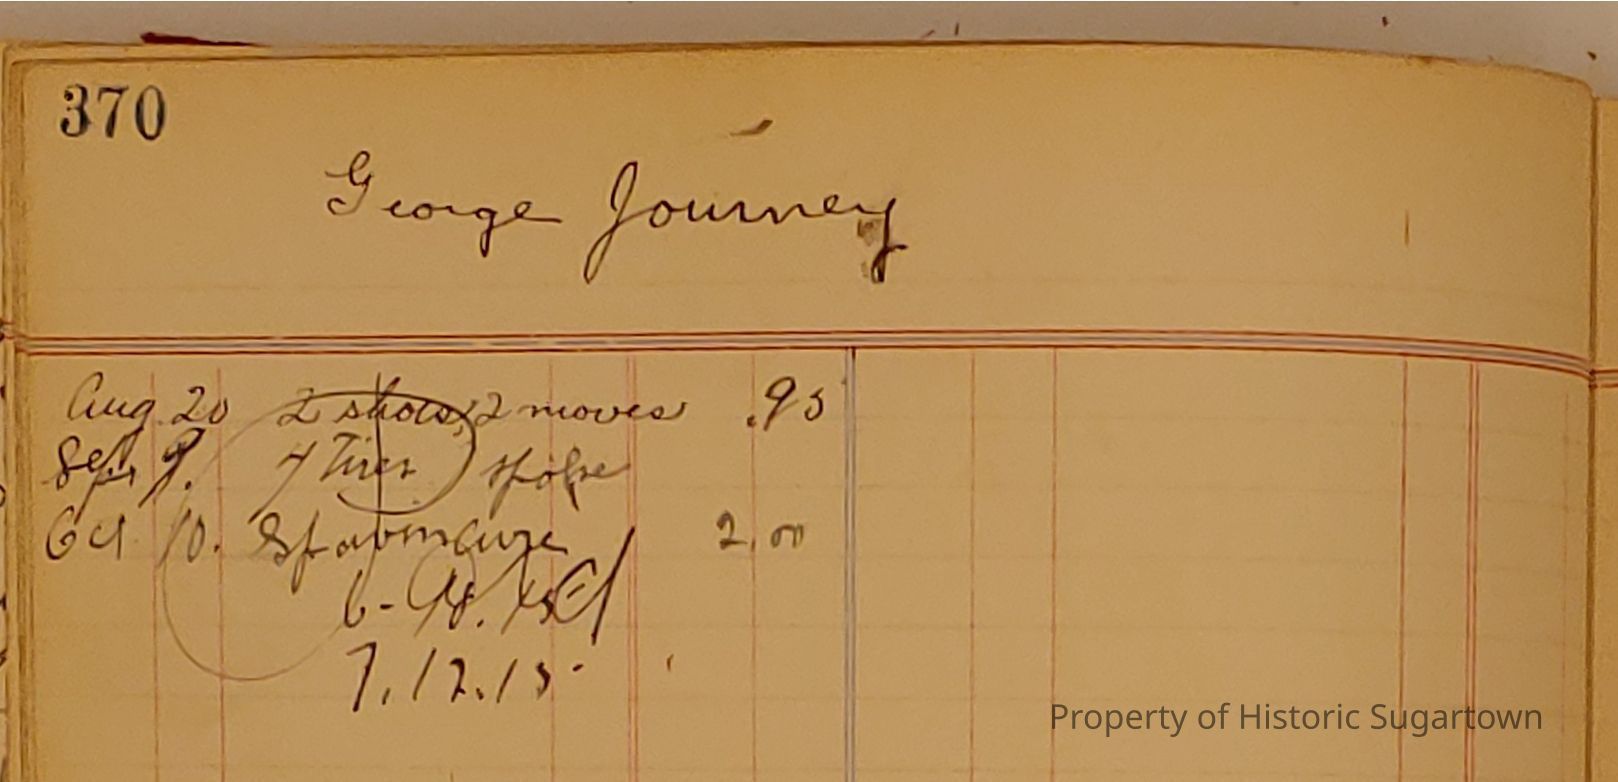 370
George Journey
Aug. 20 2 shoes, 2 moves .95
Sept 9. 4 Tires spoke
Oct 10. Spavin Cure 2.00
7.12.15
Property of Historic Sugartown